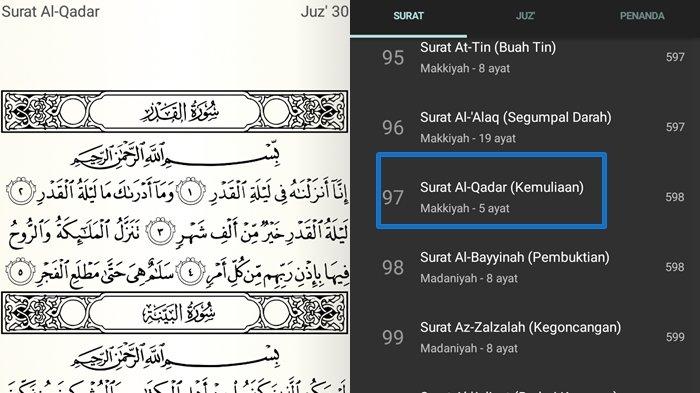 Surat Al-Qadar
Juz' 30
سُورَةُ القَدْرِ
بِسْمِ اللَّهِ الرَّحْمَٰنِ الرَّحِيمِ
إِنَّا أَنزَلْنَاهُ فِي لَيْلَةِ الْقَدْرِ ١ وَمَا أَدْرَىٰكَ مَا لَيْلَةُ الْقَدْرِ ٢
لَيْلَةُ الْقَدْرِ خَيْرٌ مِّنْ أَلْفِ شَهْرٍ ٣ تَنَزَّلُ الْمَلَائِكَةُ وَالرُّوحُ
فِيهَا بِإِذْنِ رَبِّهِم مِّن كُلِّ أَمْرٍ ٤ سَلَامٌ هِيَ حَتَّىٰ مَطْلَعِ الْفَجْرِ ٥
سُورَةُ البَيِّنَةِ
بِسْمِ اللَّهِ الرَّحْمَٰنِ الرَّحِيمِ
SURAT
JUZ'
PENANDA
95 Surat At-Tin (Buah Tin) 597
Makkiyah - 8 ayat
96 Surat Al-'Alaq (Segumpal Darah) 597
Makkiyah - 19 ayat
97 Surat Al-Qadar (Kemuliaan) 598
Makkiyah - 5 ayat
98 Surat Al-Bayyinah (Pembuktian) 598
Madaniyah - 8 ayat
99 Surat Az-Zalzalah (Kegoncangan) 599
Madaniyah - 8 ayat